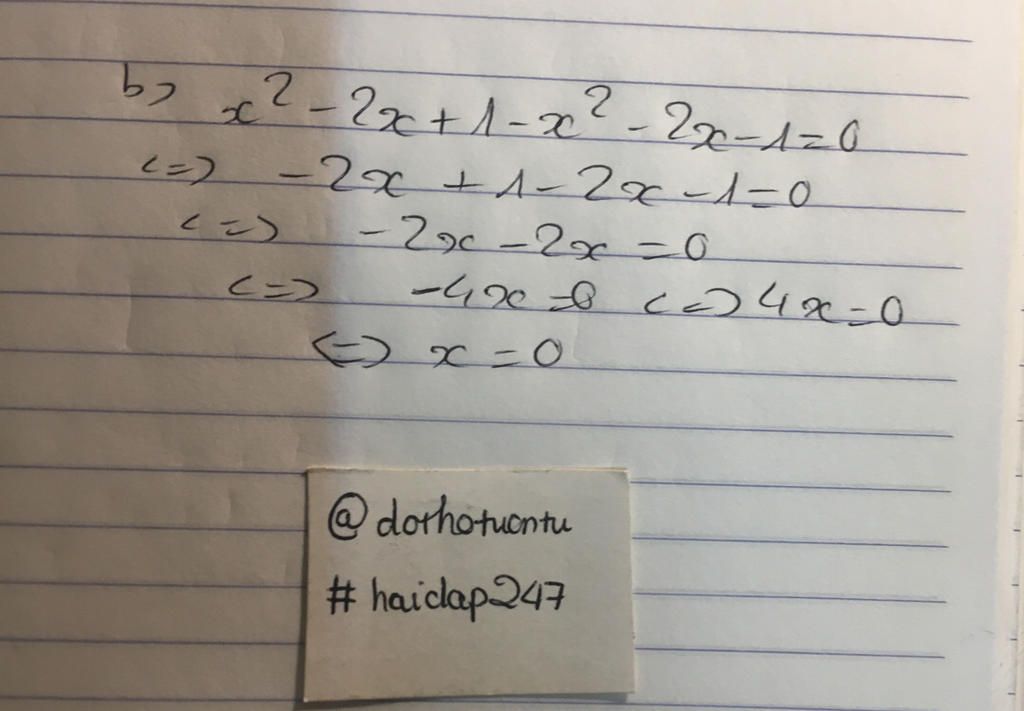 b) x² - 2x + 1 - x² - 2x - 1 = 0
<=> - 2x + 1 - 2x - 1 = 0
<=> - 2x - 2x = 0
<=> - 4x = 0 <=> 4x = 0
<=> x = 0
@dorhotuontu
#haidap247